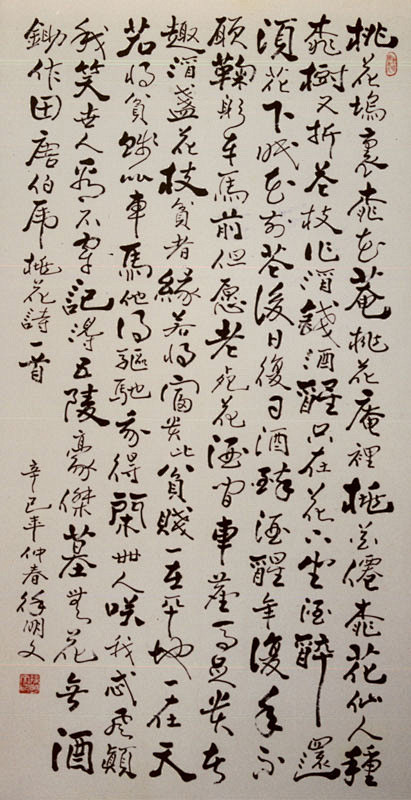 桃花塢裏桃花菴桃花庵裡桃花僊桃花仙人種
桃樹又折花枝作酒錢酒醒只在花下坐酒醉還
須花下眠花前花後日復日酒醉酒醒年復年不
願鞠躬車馬前但愿老死花酒間車塵馬足貴者
趣酒盞花枝貧者緣若將富貴比貧賤一在平地一在天
若將貧賤比車馬他得驅馳我得閑世人咲我忒風顛
我笑世人看不穿記得五陵豪傑墓無花無酒
鋤作田唐伯虎桃花詩一首
辛巳年仲春徐明文